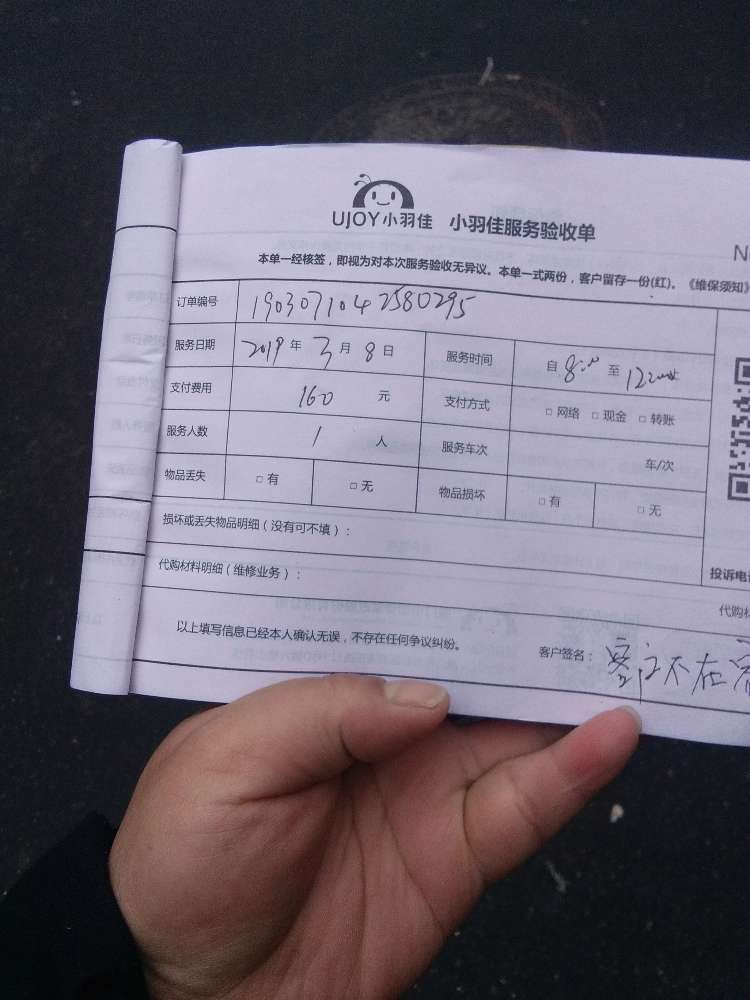 UJOY小羽佳 小羽佳服务验收单
本单一经核签，即视为对本次服务验收无异议。本单一式两份，客户留存一份(红)。《维保须知》
订单编号 1903071042580295
服务日期 2019 年 3 月 8 日 服务时间 自 8:00 至 12:00
支付费用 160 元 支付方式 □ 网络 □ 现金 □ 转账
服务人数 1 人 服务车次 车/次
物品丢失 □ 有 □ 无 物品损坏 □ 有 □ 无
损坏或丢失物品明细（没有可不填）：
代购材料明细（维修业务）： 投诉电
代购
以上填写信息已经本人确认无误，不存在任何争议纠纷。 客户签名： 不在